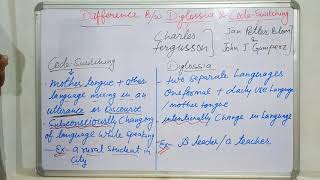 Difference B/w Diglossia & Code-Switching
Charles Fergusson
Jan Petter Blom &
John J. Gumperz
Code-Switching
- Mother tongue + other
language mixing in an
utterance or Discourse
- Subconsciously Changing
of language while speaking
- Ex- a rural student in
city
Diglossia
- two Separate Languages
One formal + daily use language
/mother tongue
- intentionally Change in Language
- Ex- A leader/a teacher